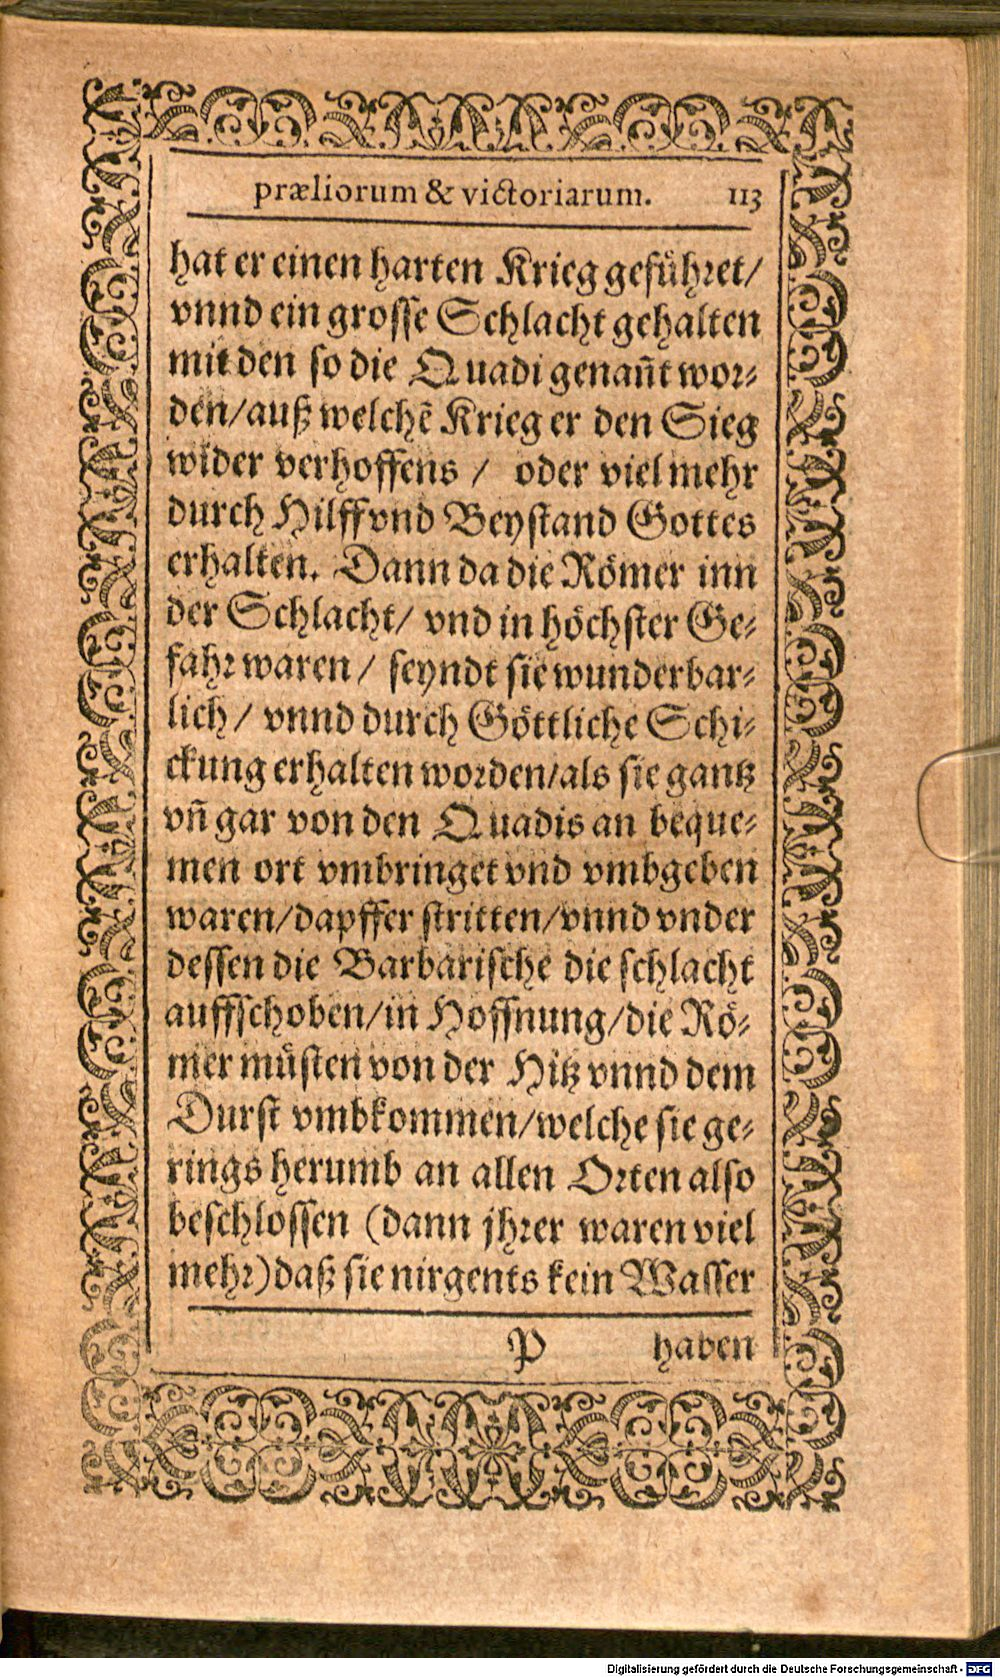 præliorum & victoriarum. 113
hat er einen harten Krieg geführet/
vnnd ein grosse Schlacht gehalten
mit den so die Quadi genan̄t wor-
den/auß welchē Krieg er den Sieg
wider verhoffens / oder viel mehr
durch Hilff vnd Beystand Gottes
erhalten. Dann da die Römer inn
der Schlacht/ vnd in höchster Ge-
fahr waren / seyndt sie wunderbar-
lich / vnnd durch Göttliche Schi-
ckung erhalten worden/als sie gantz
vn̄ gar von den Quadis an beque-
men ort vmbringet vnd vmbgeben
waren/dapffer stritten/vnnd vnder
dessen die Barbarische die schlacht
auffschoben/in Hoffnung/die Rö-
mer müsten von der Hitz vnnd dem
Durst vmbkommen/welche sie ge-
rings herumb an allen Orten also
beschlossen (dann jhrer waren viel
mehr)daß sie nirgents kein Wasser
P haben
Digitalisierung gefördert durch die Deutsche Forschungsgemeinschaft - DFG